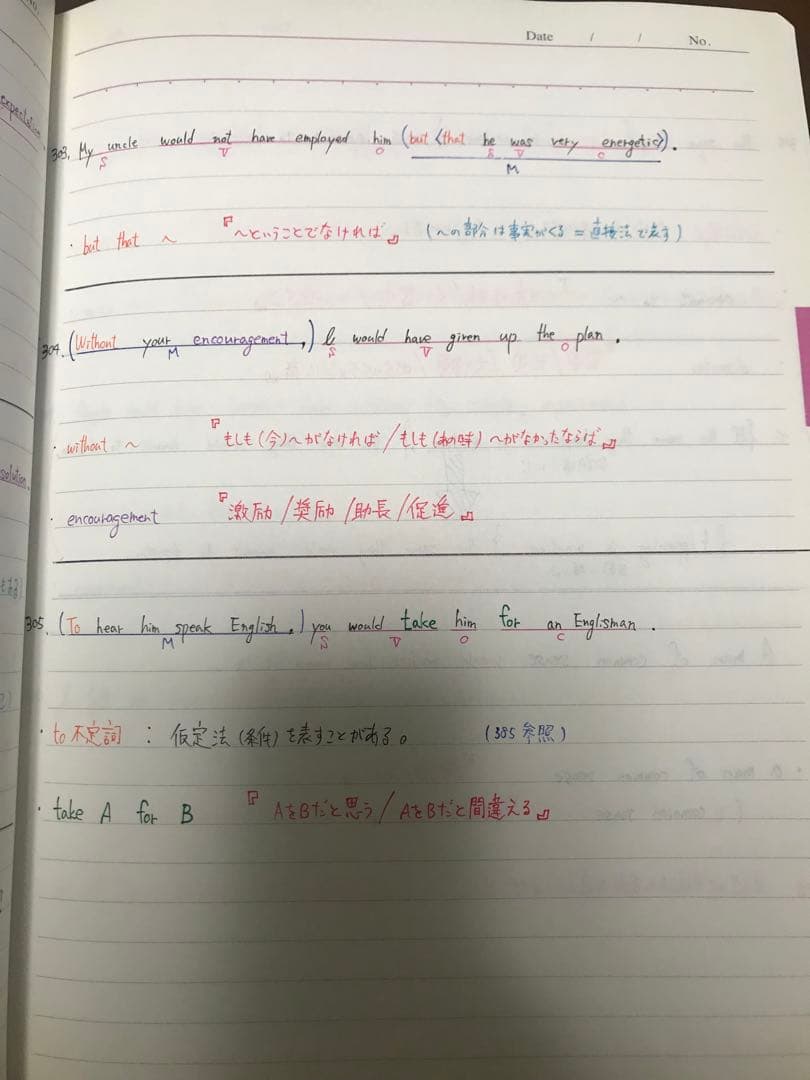 Date / / No.
expectation
303. My uncle would not have employed him (but <that he was very energetic>).
S V O S V C
M
・but that ～ 『～ということでなければ』 (～の部分は事実がくる = 直接法で表す)
304. (Without your encouragement,) I would have given up the plan.
M S V O
・without ～ 『もしも(今)～がなければ/もしも(あの時)～がなかったならば』
solution.
・encouragement 『激励/奨励/助長/促進』
305. (To hear him speak English,) you would take him for an Englisman.
M S V O C
・to不定詞 : 仮定法(条件)を表すことがある。 (385参照)
・take A for B 『AをBだと思う/AをBだと間違える』